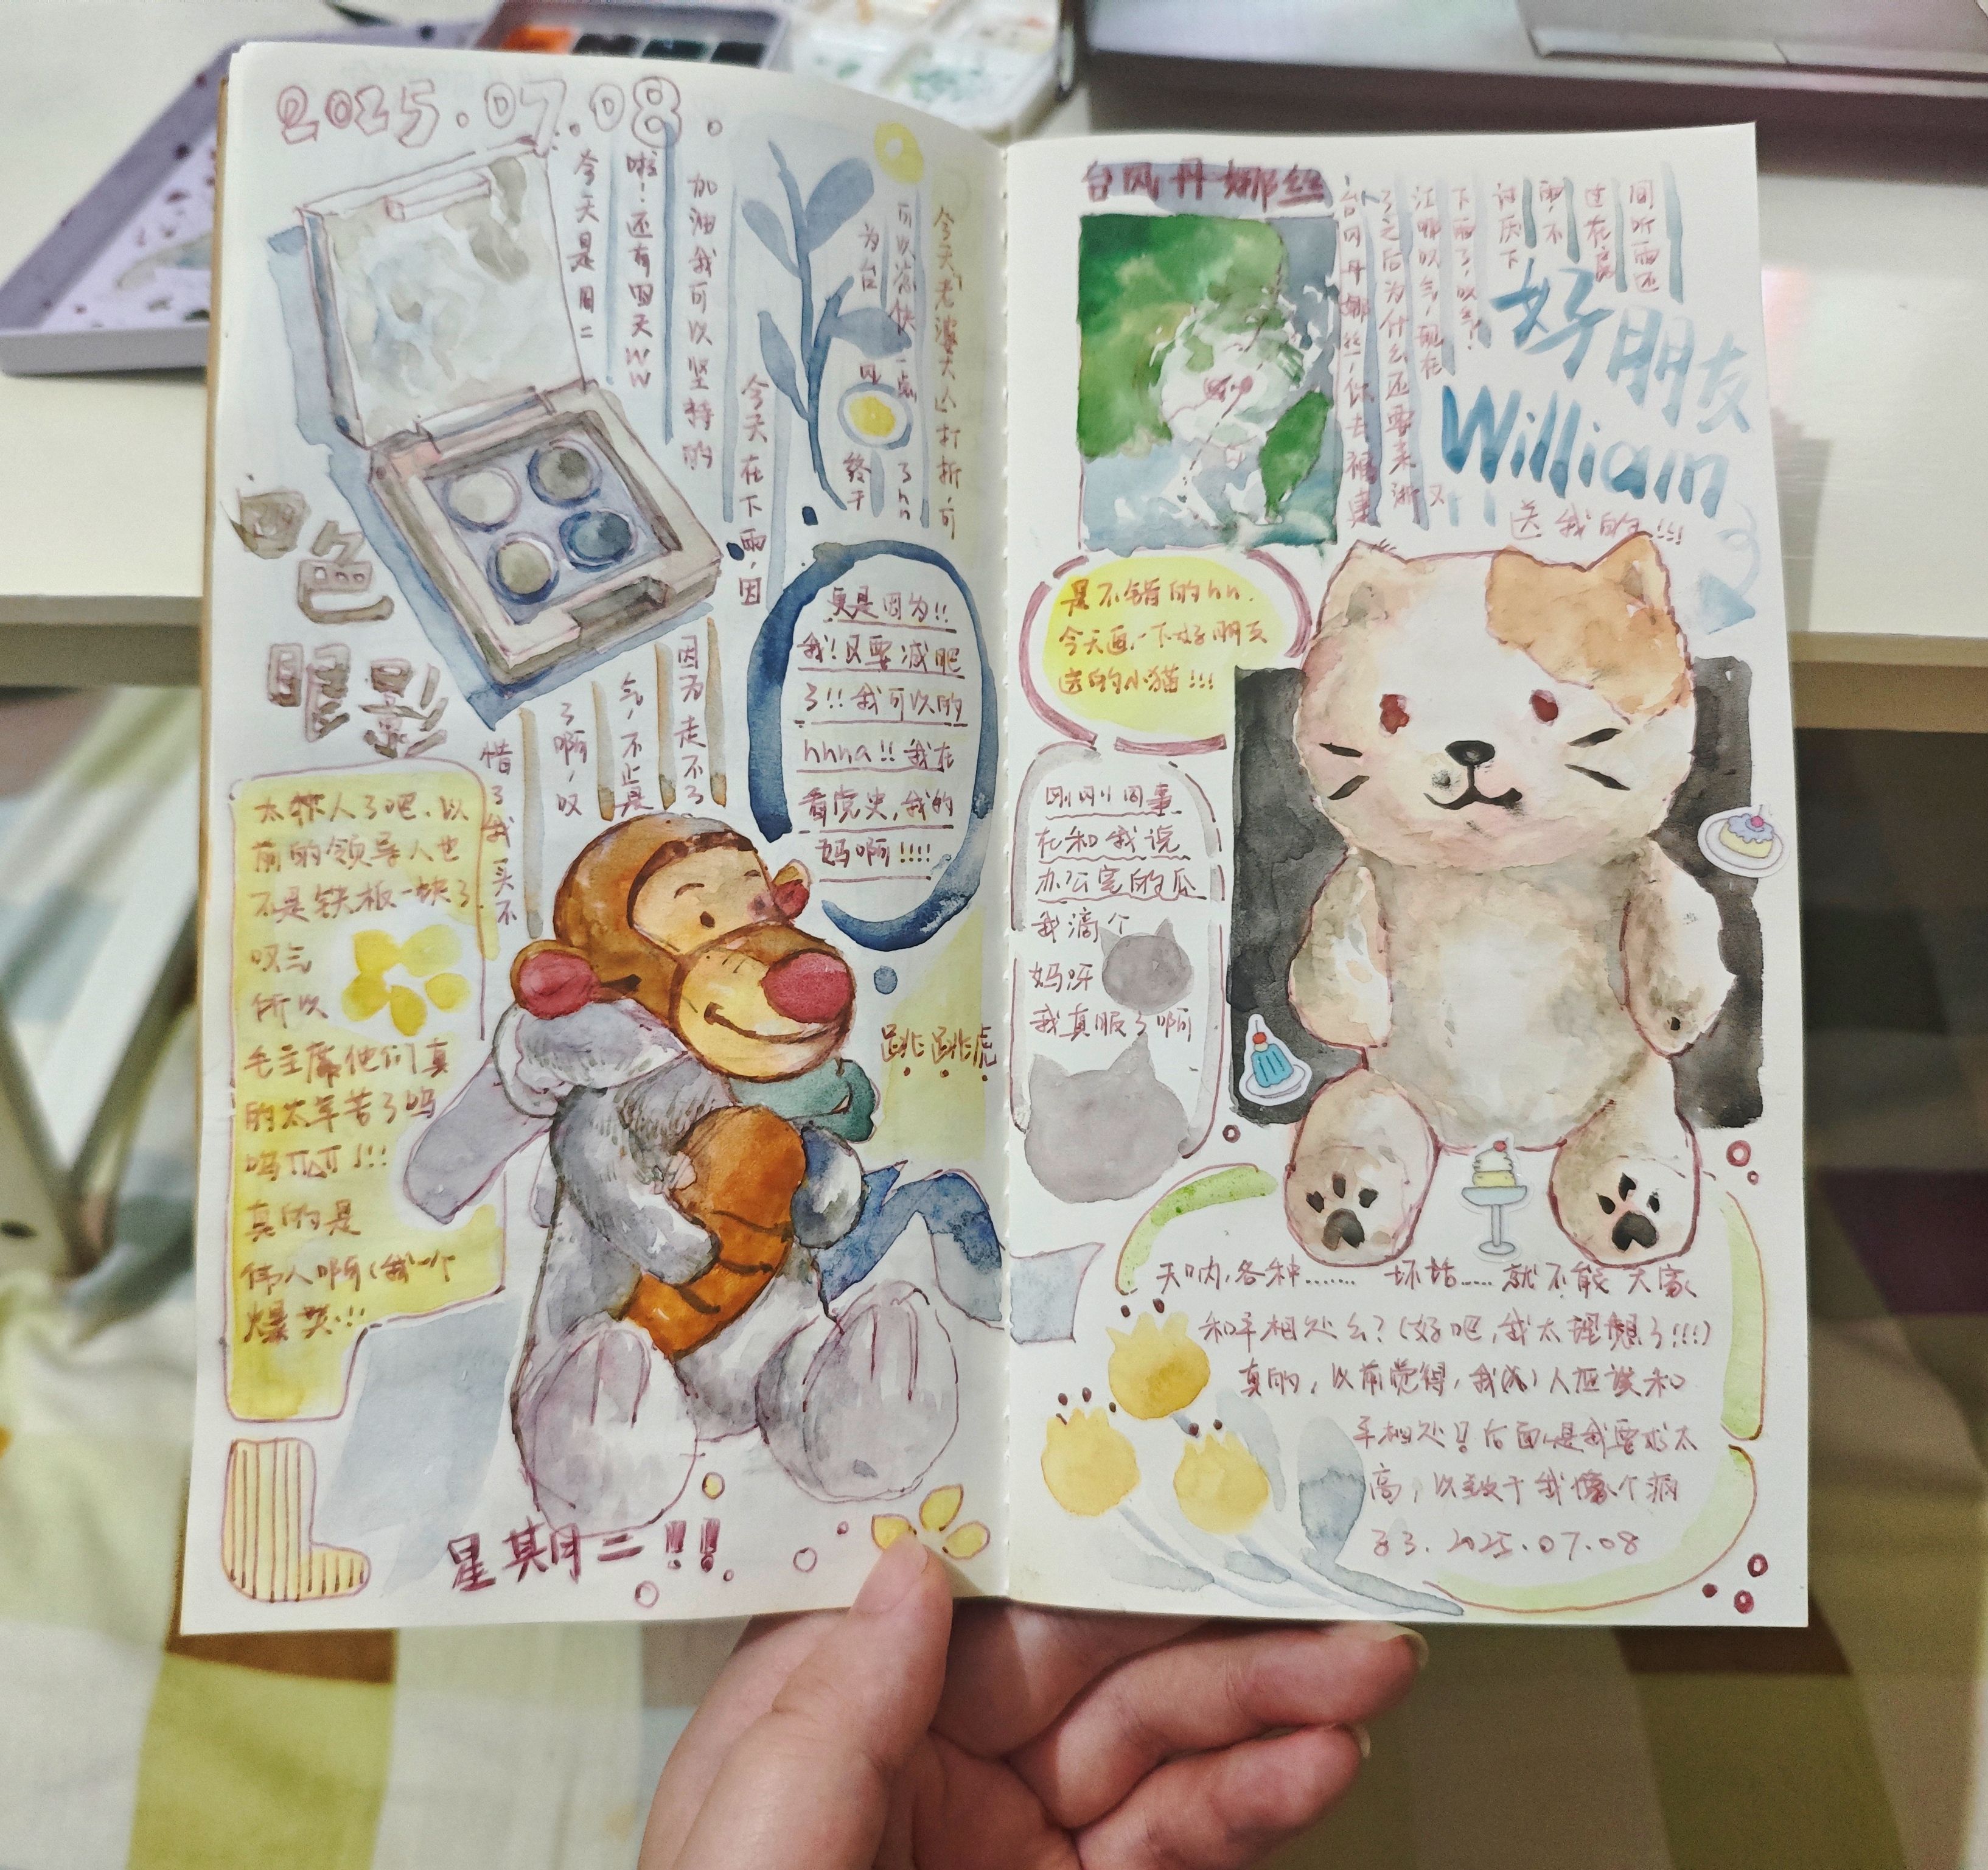 2025.07.08.
今天是周二
啦！还有四天ww
加油我可以坚持的
今天在下雨，因
为台风
终于
可以凉快一点
了hh
今天老婆大人打折，可
惜了我买不
了啊，叹
气，不止是
因为走不了
四色
眼影
更是因为!!
我！又要减肥
了!!我可以的
hhha!!我在
看党史，我的
妈啊!!!!
太熬人了吧，以
前的领导人也
不是铁板一块了
叹气
所以
毛主席他们真
的太辛苦了呜
呜TAT!!!
真的是
伟人啊（我一个
爆哭!!
跳跳虎
星期二!!
台风丹娜丝
台风丹娜丝，你去福建
了之后为什么还要来浙
江哪叹气，现在又
下雨了，叹气！
讨厌下
雨，不
过在房
间听雨还
是不错的hh.
今天画一下好朋友
送的小猫!!!
好朋友
William
送我的!!!
刚刚同事
在和我说
办公室的瓜
我滴个
妈呀
我真服了啊
天呐，各种……坏话……就不能大家
和平相处么？（好吧，我太理想了!!!）
真的，以前觉得，我(不)人应该和
平相处!!后面是我要求太
高，以致于我像个病
号3.2025.07.08